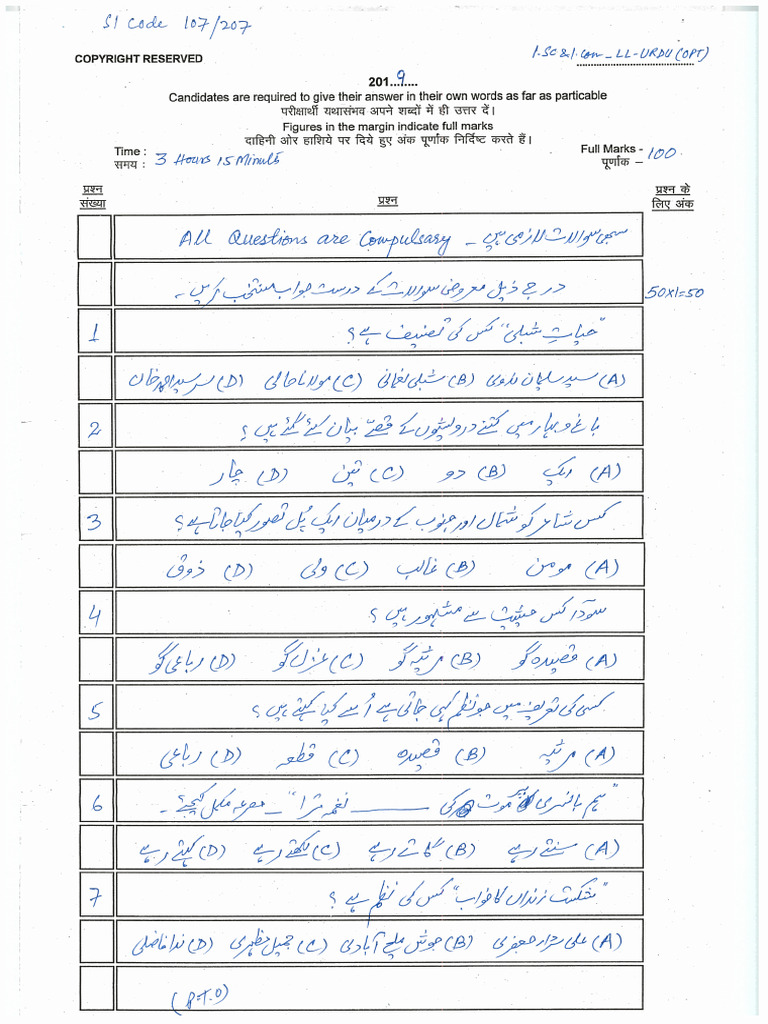 SI Code 107/207
COPYRIGHT RESERVED
I.SC & I.Com – LL-URDU (OPT)
201...9....
Candidates are required to give their answer in their own words as far as particable
परीक्षार्थी यथासंभव अपने शब्दों में ही उत्तर दें।
Figures in the margin indicate full marks
दाहिनी ओर हाशिये पर दिये हुए अंक पूर्णांक निर्दिष्ट करते हैं।
Time :
समय : 3 Hours 15 Minuts
Full Marks -
पूर्णांक – 100.
प्रश्न संख्या
प्रश्न
प्रश्न के लिए अंक
All Questions are Compulsary – سبھی سوالات لازمی ہیں
درج ذیل معروضی سوالات کے درست جواب منتخب کریں۔ 50x1=50
1 "حیات شبلی" کس کی تصنیف ہے؟
(A) سید سلیمان ندوی (B) شبلی نعمانی (C) مولانا حالی (D) سر سید احمد خان
2 باغ و بہار میں کتنے درویشوں کے قصّے بیان کئے گئے ہیں؟
(A) ایک (B) دو (C) تین (D) چار
3 کس شاعر کو شمال اور جنوب کے درمیان ایک پُل تصور کیا جاتا ہے؟
(A) مومن (B) غالب (C) ولی (D) ذوق
4 سودا کس حیثیت سے مشہور ہیں؟
(A) قصیدہ گو (B) مرثیہ گو (C) غزل گو (D) رباعی گو
5 کسی کی تعریف میں جو نظم کہی جاتی ہے اُسے کیا کہتے ہیں؟
(A) مرثیہ (B) قصیدہ (C) قطعہ (D) رباعی
6 "ہم بانسری پر موت کی ——— نغمہ ترا" – مصرعہ مکمل کیجیے؟
(A) سنتے رہے (B) گاتے رہے (C) لکھتے رہے (D) کہتے رہے
7 "شکست زنداں کا خواب" کس کی نظم ہے؟
(A) علی سردار جعفری (B) جوش ملیح آبادی (C) جمیل مظہری (D) ندا فاضلی
(P.T.O)